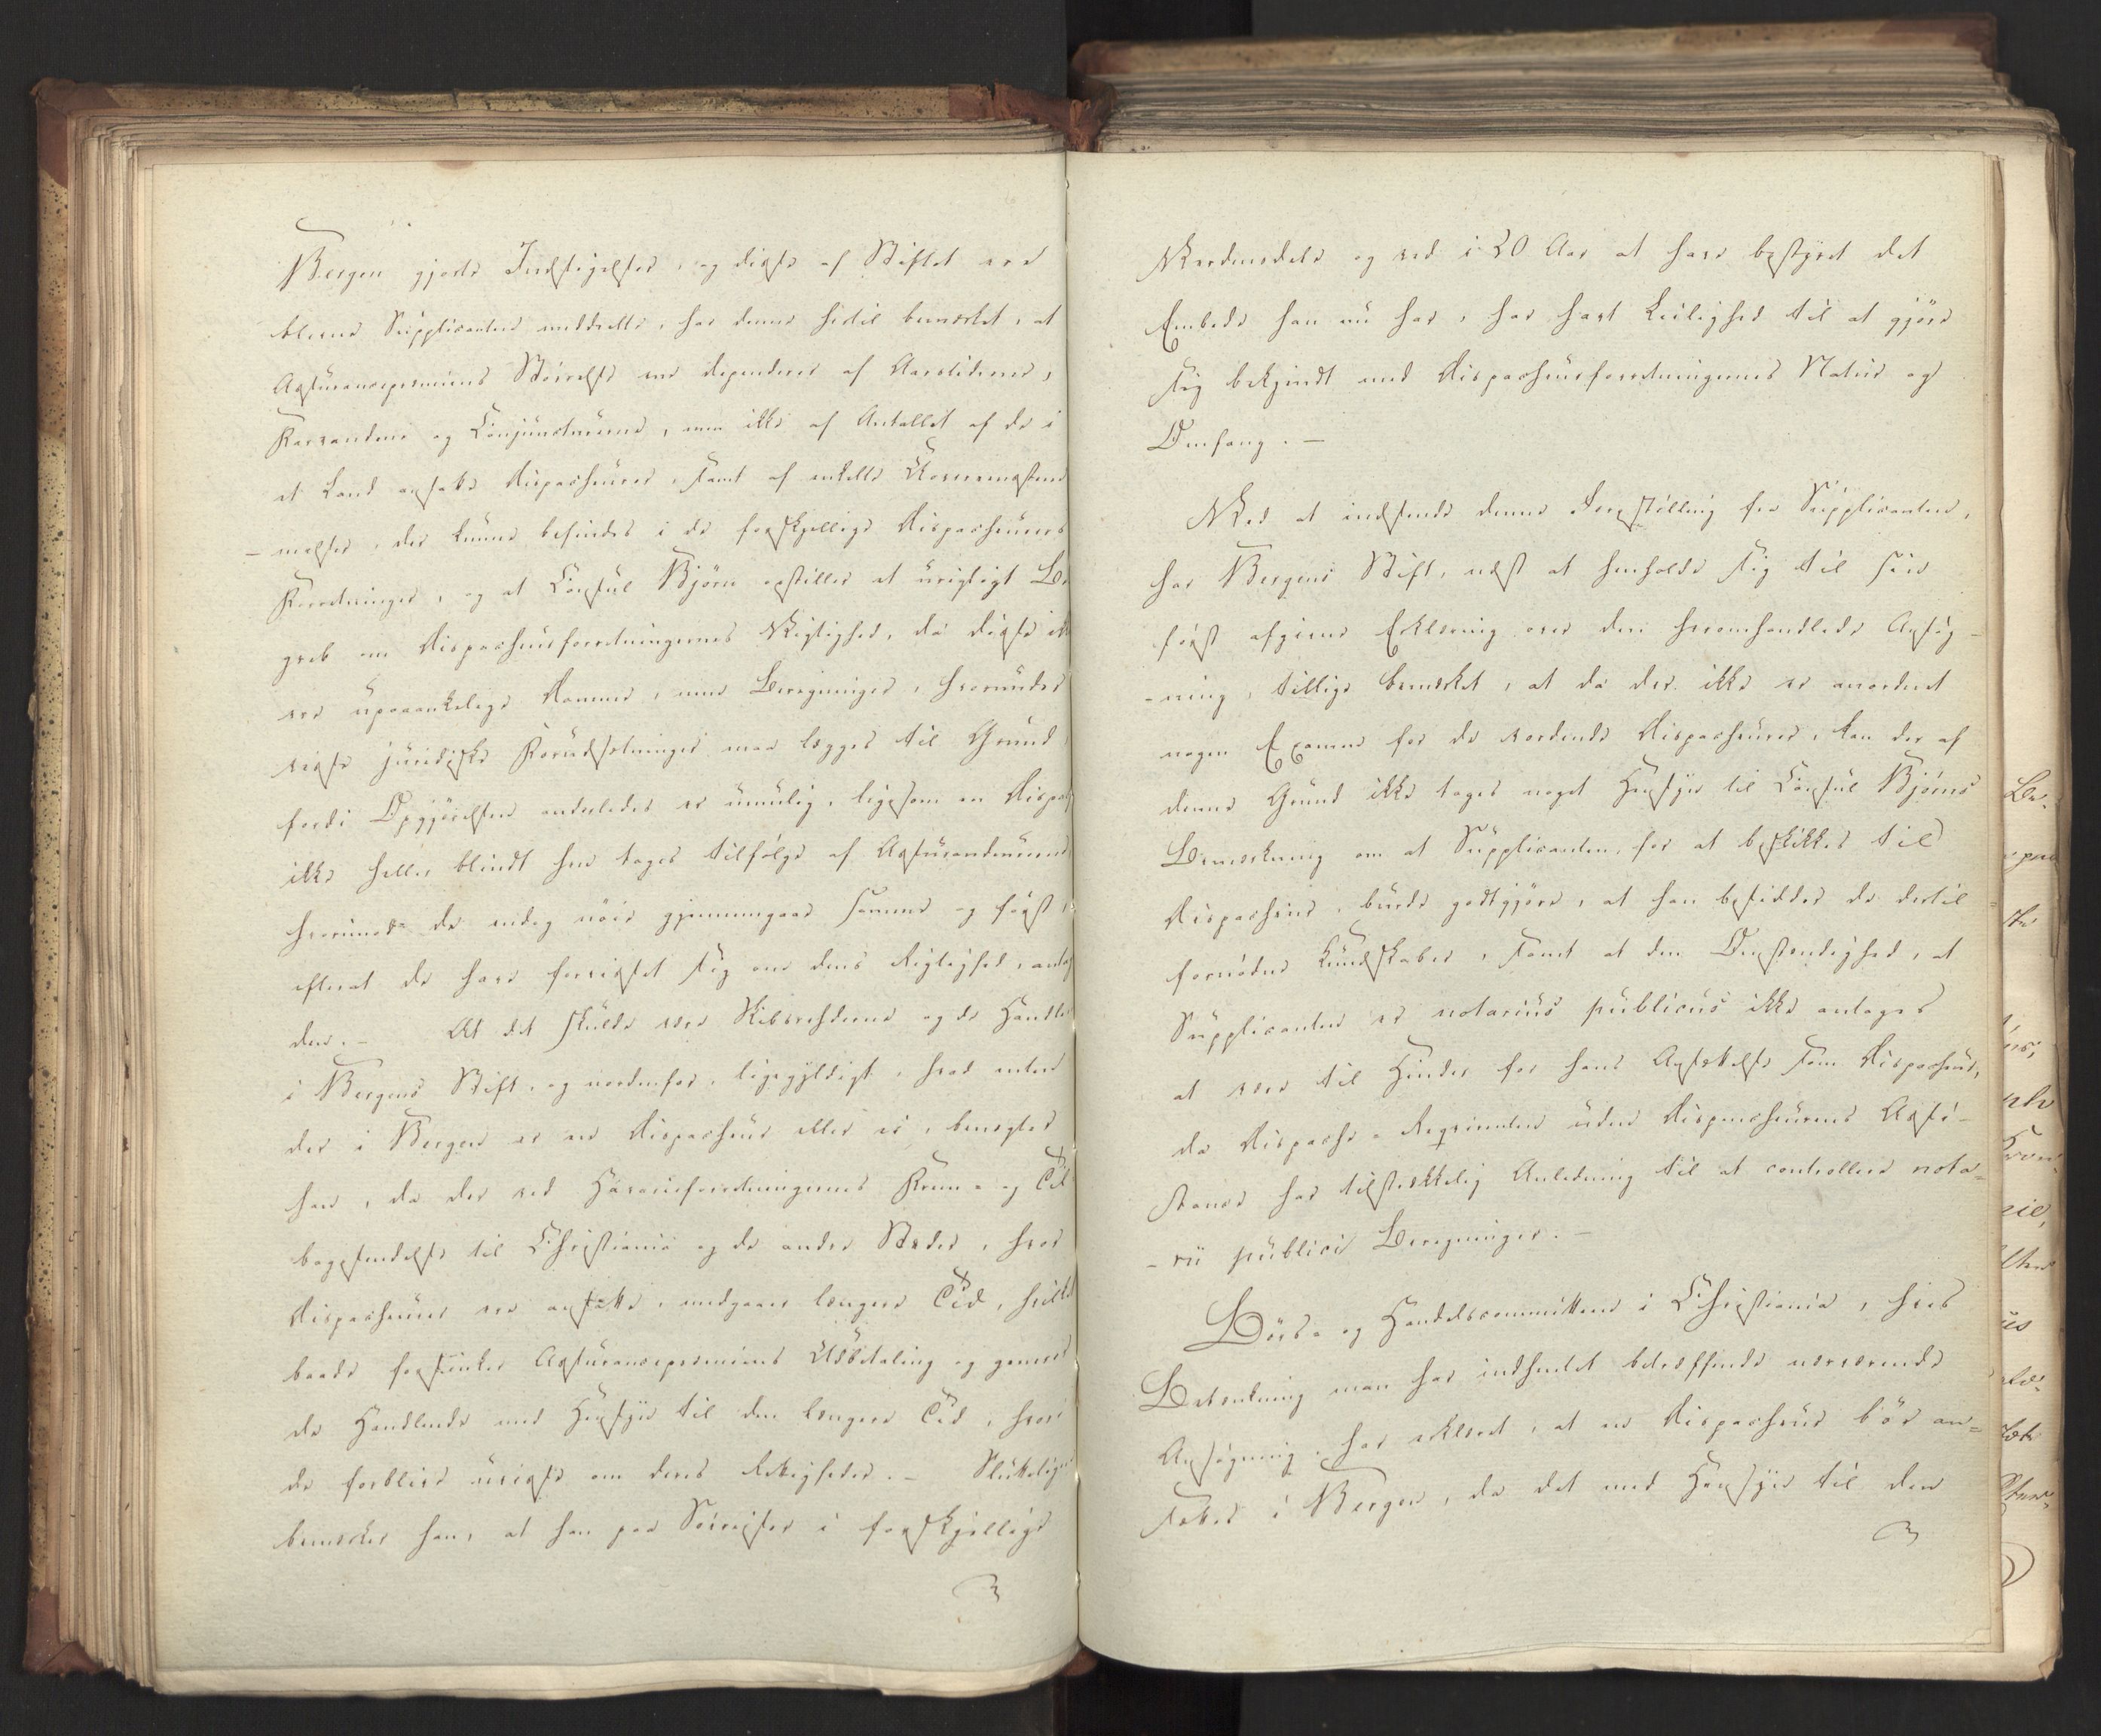 Bergen gjorte Indsigelser, og disse af Stiftet ere
blevne Supplicanten meddeelte, har denne hertil bemærket, at
Assurancepræmiens Størrelse vel dependerer af Aarstiderne,
Farvandene og Conjuncturerne, men ikke af Antallet af de i
et Land ansatte Dispacheurer, samt af enkelte Uoverensstem-
-melser, der kunne befindes i de forskjellige Dispacheurers
Forretninger, og at Consul Bjørn opstiller et urigtigt Be
greb om Dispacheurforretningernes Vigtighed, da disse ikke
ere upaaankelige Domme, men Beregninger, hvorunder
visse juridiske Forudsætninger maa lægges til Grund,
fordi Opgjørelsen anderledes er umulig, ligesom en Dispache
ikke heller blindt hen tages tilfølge af Assurandeurerne,
hvorimod de endog nøie gjennemgaae samme og først,
efterat de have forvisset sig om dens Rigtighed, antage
den. – At det skulde være Skibsrhederne og de Handlende
i Bergens Stift, og nordenfor, ligegyldigt, hvad enten
der i Bergen er en Dispacheur eller ei, benegter
han, da der ved Havarieforretningernes Frem- og Til
bagesendelse til Christiania og de andre Steder, hvor
Dispacheurer ere ansatte, medgaaer længere Tid, hvilket
baade forsinker Assurancepræmiens Udbetaling og generer
de Handlende med Hensyn til den længere Tid, hvori
de forblive uvisse om deres Rettigheder. – Sluttelig
bemærker han, at han paa Søreiser i forskjellige
Verdensdele og ved i 20 Aar at have bestyret det
Embede han nu har, har havt Leilighed til at gjøre
sig bekjendt med Dispacheurforretningernes Natur og
Omfang. –
Ved at indsende denne Forestilling fra Supplicanten,
har Bergens Stift, næst at henholde sig til sin
først afgivne Erklæring over den heromhandlede Ansøg-
-ning, tillige bemærket, at da der ikke er anordnet
nogen Examen for de vordende Dispacheurer, kan der af
denne Grund ikke tages noget Hensyn til Consul Bjørns
Bemærkning om at Supplicanten, for at beskikkes til
Dispacheur, burde godtgjøre, at han besidder de dertil
fornødne Kundskaber, samt at den Omstændighed, at
Supplicanten er notarius publicus ikke antages
at være til Hinder for hans Ansættelse som Dispacheur,
da Dispache-Reqvirenten uden Dispacheurens Assi-
stance har tilstrækkelig Anledning til at controllere nota-
-rii publici Beregninger. –
Börs- og Handelscommitteen i Christiania, hvis
Betænkning man har indhentet betræffende nærværende
Ansøgning, har erklæret, at en Dispacheur bør an-
sættes i Bergen, da det med Hensyn til den